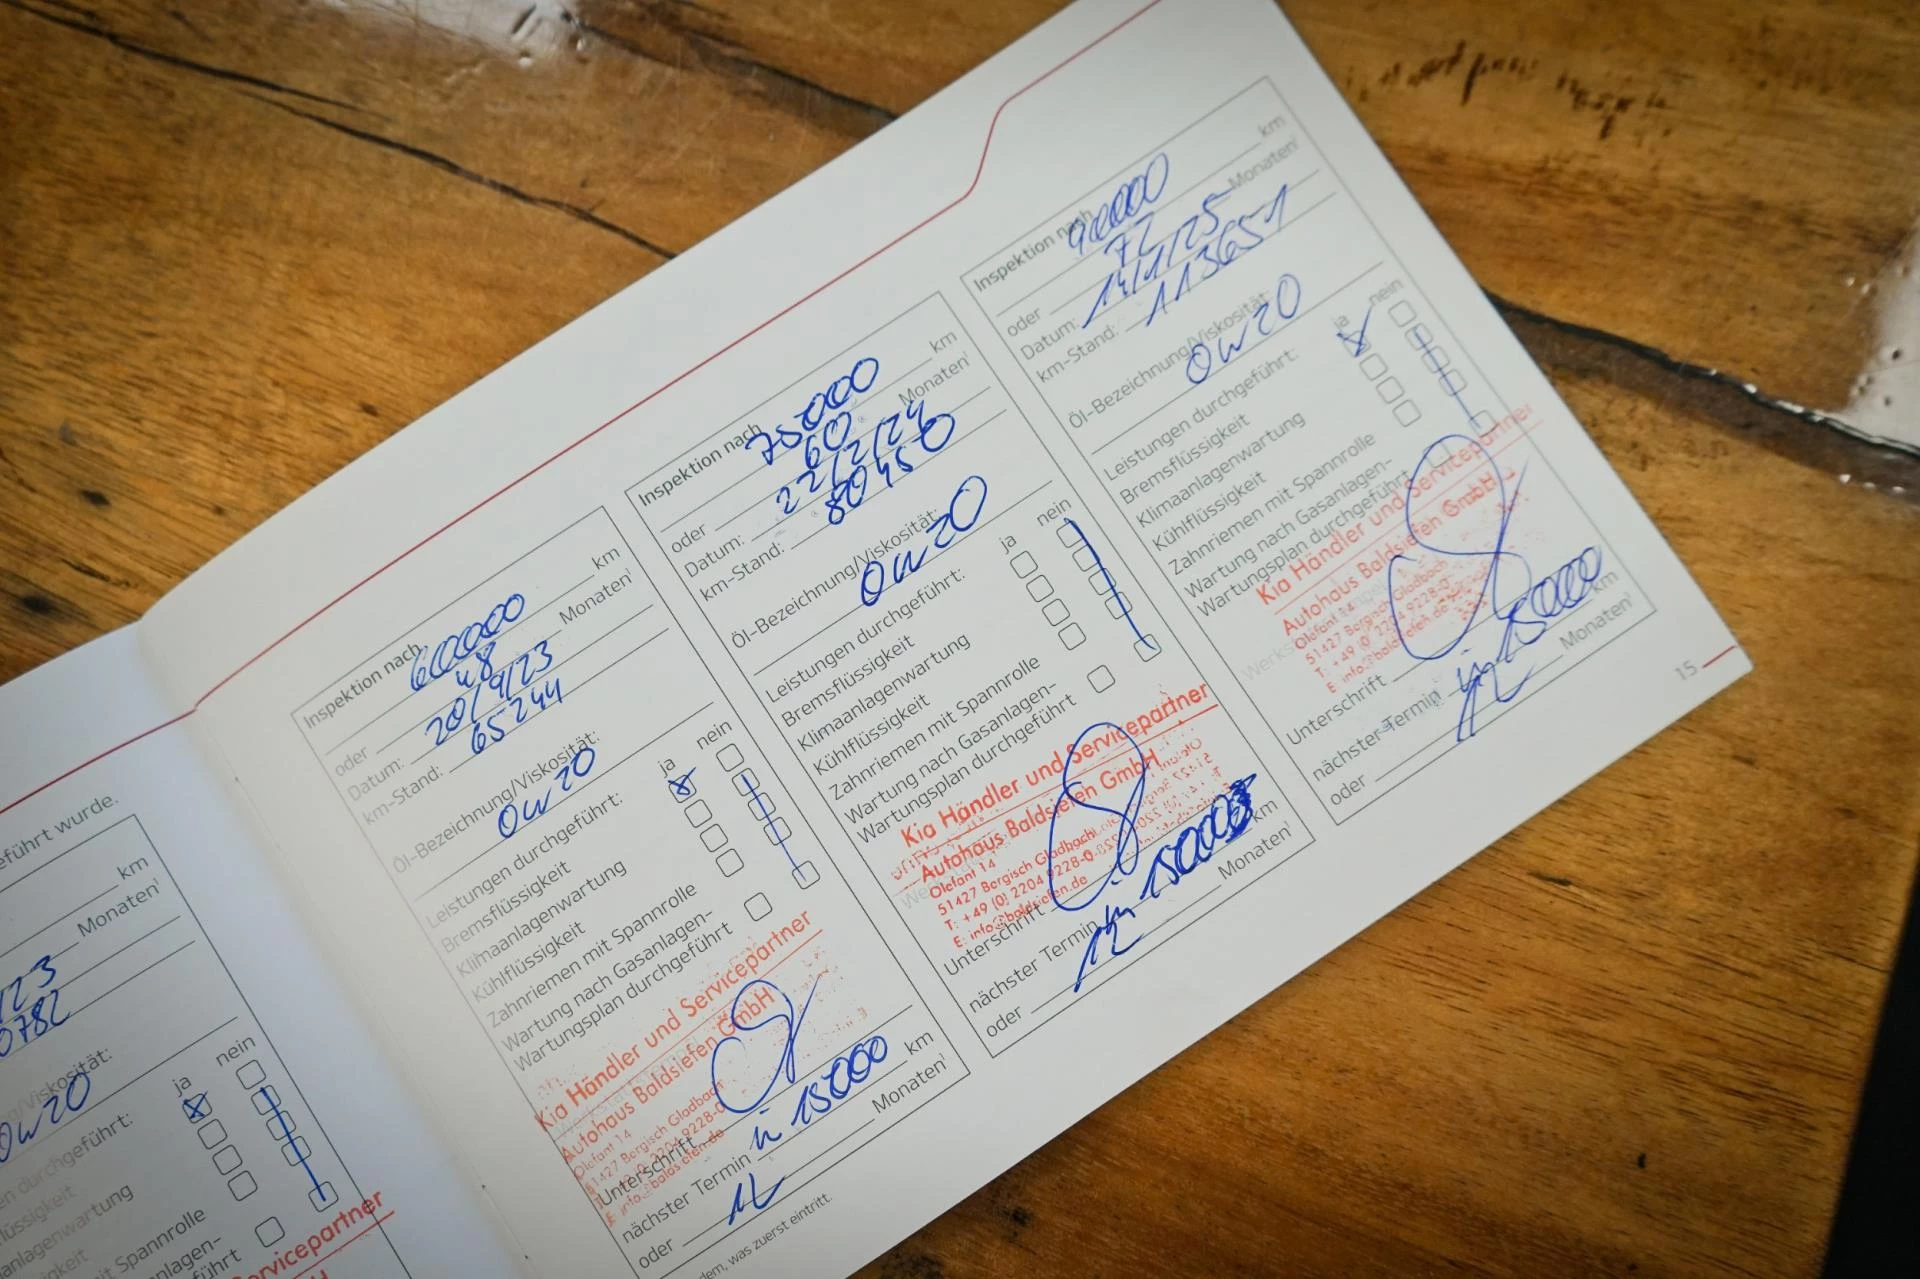 eführt wurde.
km
Monaten¹
/23
0782
ng/Viskosität:
0w20
ja nein
en durchgeführt:
lüssigkeit
anlagenwartung
gkeit
mit Spannrolle
Gasanlagen-
führt
Servicepartner
Inspektion nach 60000 km
oder 48 Monaten¹
Datum: 20/9/23
km-Stand: 65244
Öl-Bezeichnung/Viskosität:
0w20
Leistungen durchgeführt: ja nein
Bremsflüssigkeit
Klimaanlagenwartung
Kühlflüssigkeit
Zahnriemen mit Spannrolle
Wartung nach Gasanlagen-
Wartungsplan durchgeführt
Kia Händler und Servicepartner
Autohaus Baldsiefen GmbH
Olefant 14
51427 Bergisch Gladbach
T: +49 (0) 2204 9228-0
E: info@baldsiefen.de
Unterschrift
nächster Termin in 15000 km
oder 12 Monaten¹
dem, was zuerst eintritt.
Inspektion nach 75000 km
oder 60 Monaten¹
Datum: 22/2/24
km-Stand: 80450
Öl-Bezeichnung/Viskosität:
0w20
Leistungen durchgeführt: ja nein
Bremsflüssigkeit
Klimaanlagenwartung
Kühlflüssigkeit
Zahnriemen mit Spannrolle
Wartung nach Gasanlagen-
Wartungsplan durchgeführt
Kia Händler und Servicepartner
Autohaus Baldsiefen GmbH
Olefant 14
51427 Bergisch Gladbach
T: +49 (0) 2204 9228-0
E: info@baldsiefen.de
Unterschrift
nächster Termin in 15000 km
oder 12 Monaten¹
Inspektion nach 90000 km
oder 72 Monaten¹
Datum: 14/1/25
km-Stand: 113651
Öl-Bezeichnung/Viskosität:
0w20
Leistungen durchgeführt: ja nein
Bremsflüssigkeit
Klimaanlagenwartung
Kühlflüssigkeit
Zahnriemen mit Spannrolle
Wartung nach Gasanlagen-
Wartungsplan durchgeführt
Kia Händler und Servicepartner
Autohaus Baldsiefen GmbH
Olefant 14
51427 Bergisch Gladbach
T: +49 (0) 2204 9228-0
E: info@baldsiefen.de
Unterschrift
nächster Termin in 15000 km
oder 12 Monaten¹
15